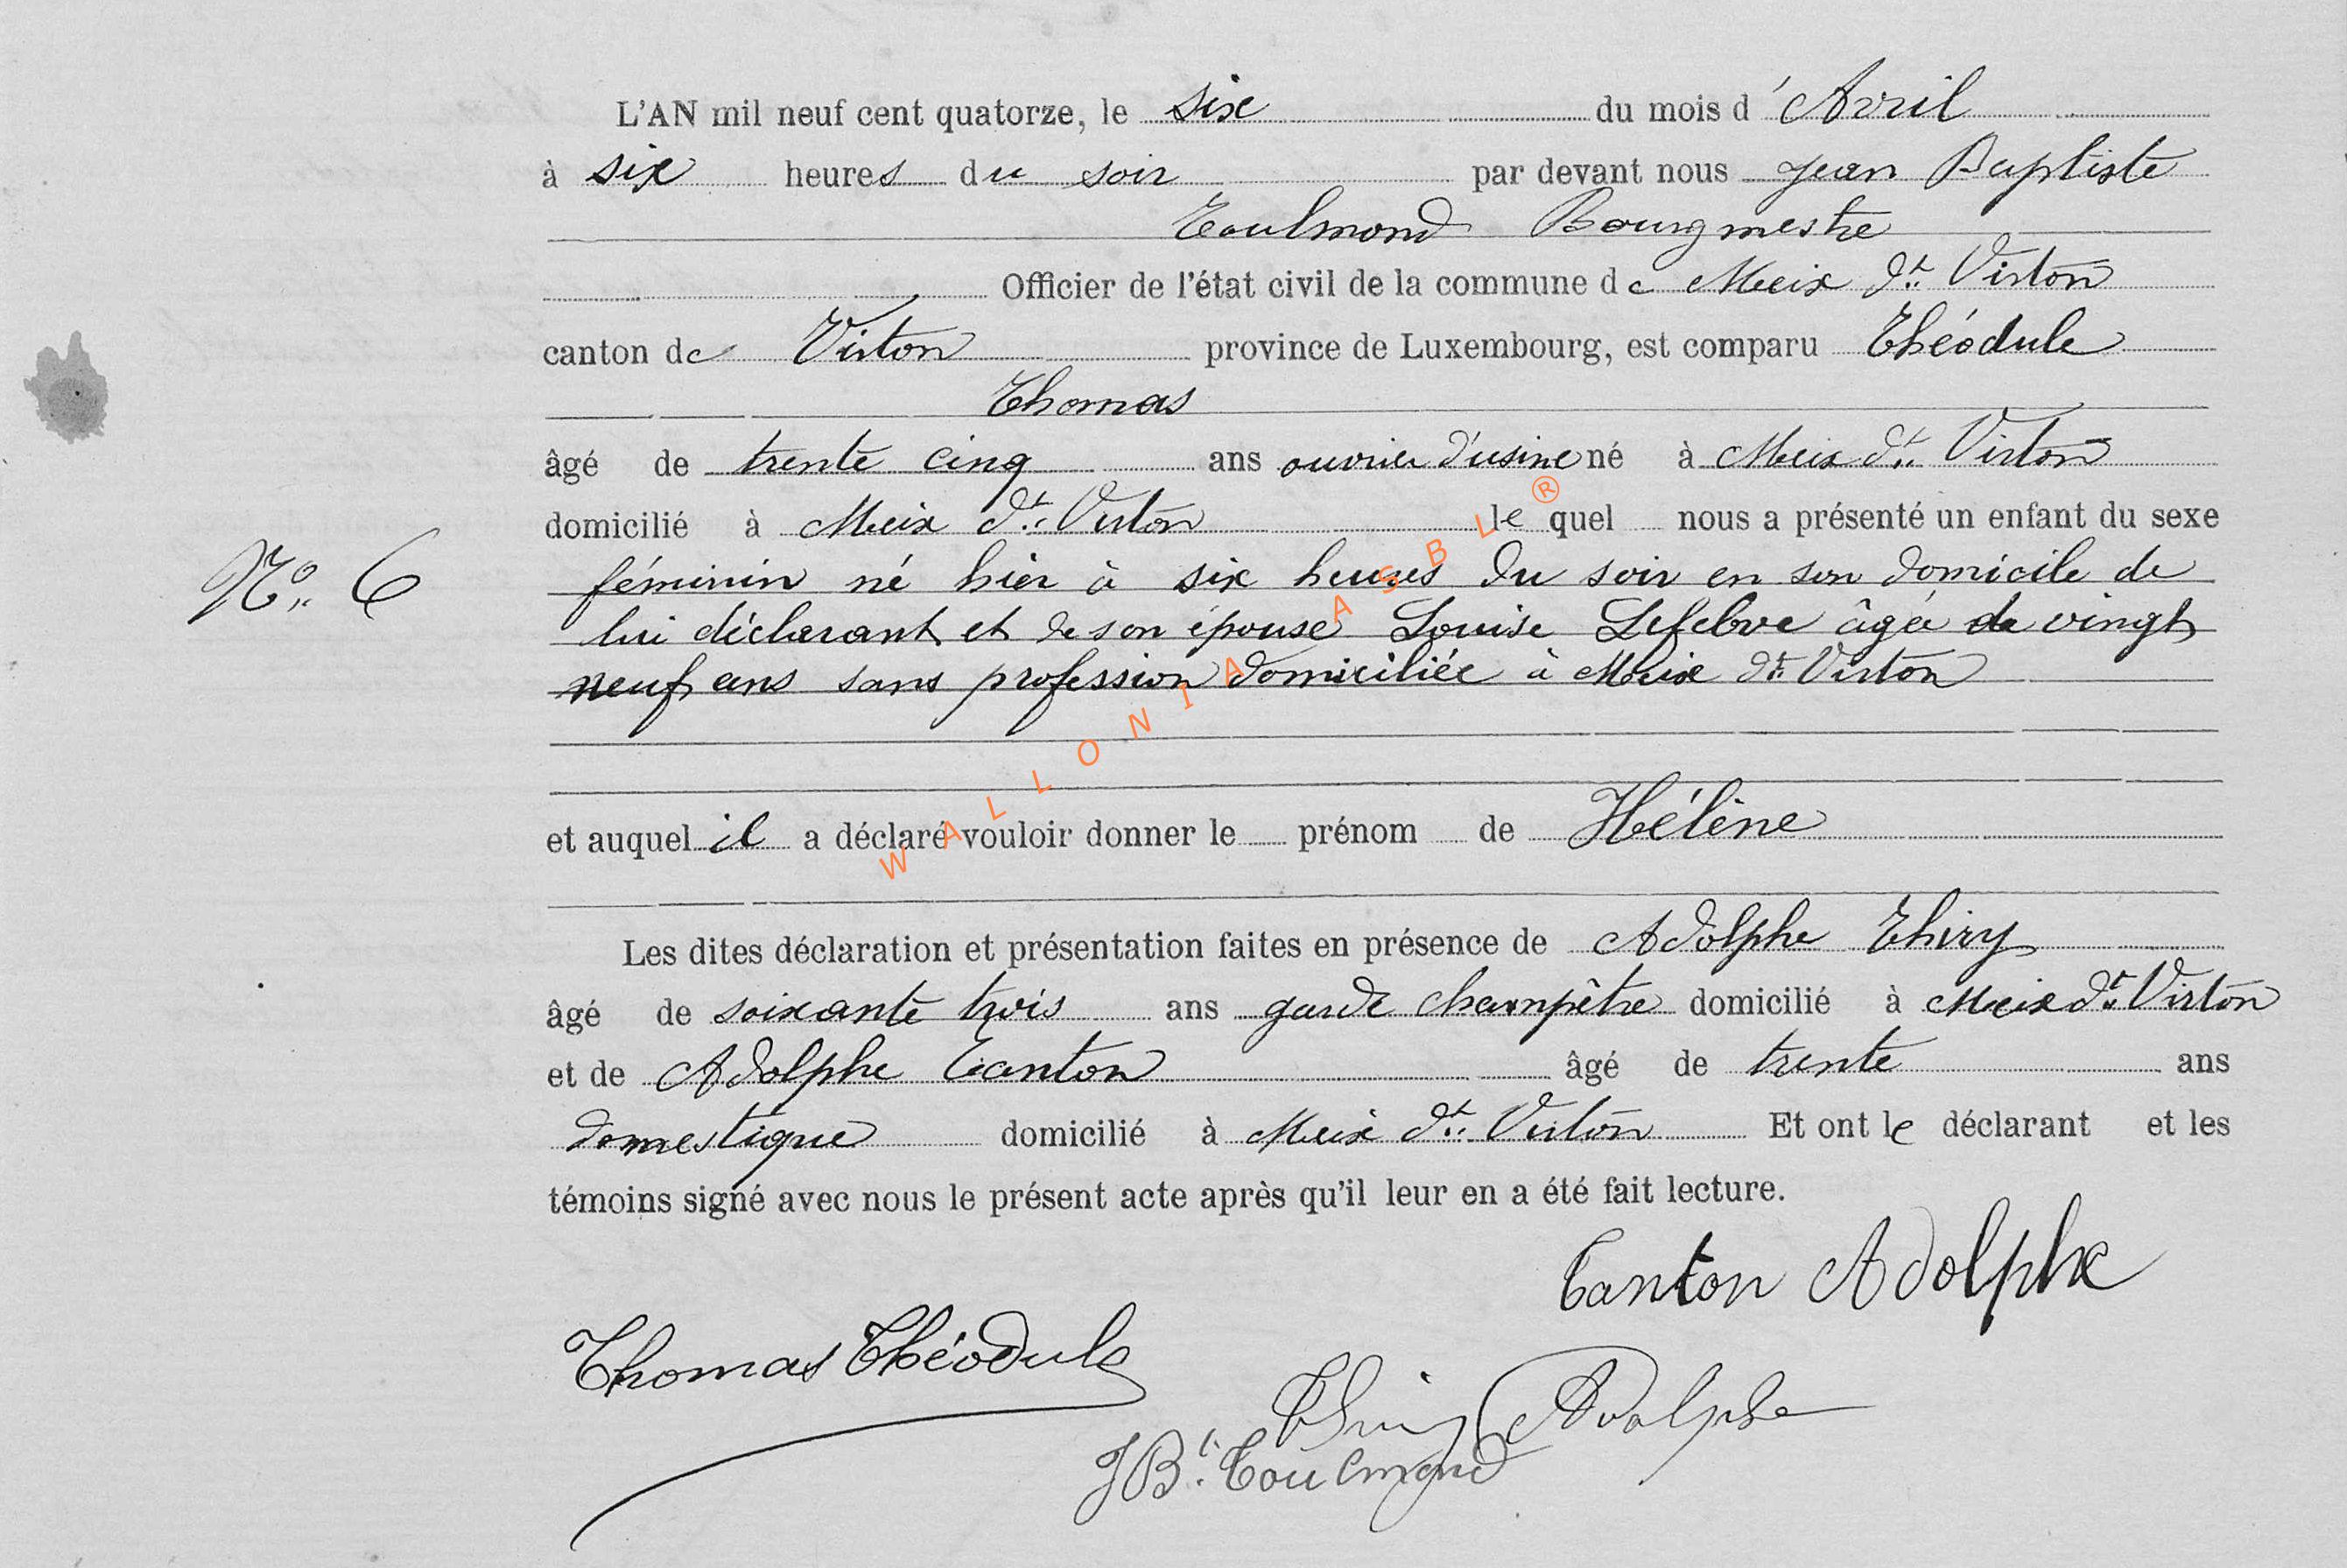 L'AN mil neuf cent quatorze, le six du mois d'Avril
à six heures du soir par devant nous Jean Baptiste
Toulmond Bourgmestre
Officier de l'état civil de la commune de Meix dt Virton
canton de Virton province de Luxembourg, est comparu Théodule
Thomas
âgé de trente cinq ans ouvrier d'usine né à Meix dt Virton
domicilié à Meix dt Virton lequel nous a présenté un enfant du sexe
No 6
féminin né hier à six heures du soir en son domicile de
lui déclarant et de son épouse Louise Lefebvre âgée de vingt
neuf ans sans profession domiciliée à Meix dt Virton
et auquel il a déclaré vouloir donner le prénom de Hélène
Les dites déclaration et présentation faites en présence de Adolphe Thiry
âgé de soixante trois ans garde champêtre domicilié à Meix dt Virton
et de Adolphe Tanton âgé de trente ans
domestique domicilié à Meix dt Virton Et ont le déclarant et les
témoins signé avec nous le présent acte après qu'il leur en a été fait lecture.
Tanton Adolphe
Thomas Théodule
Thiry Adolphe
JBte Toulmond
WALLONIA ASBL ®